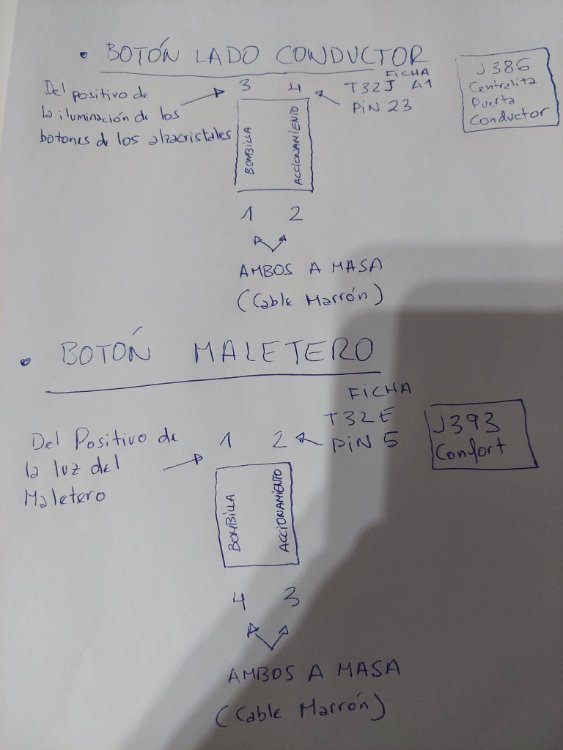 • BOTÓN LADO CONDUCTOR
Del positivo de
la iluminación de los
botones de los alzacristales
3
4
FICHA
T32J A1
PIN 23
J386
Centralita
Puerta
Conductor
BOMBILLA
ACCIONAMIENTO
1 2
AMBOS A MASA
(Cable Marrón)
• BOTÓN MALETERO
FICHA
T32E
PIN 5
J393
Confort
Del Positivo de
la luz del
Maletero
1 2
BOMBILLA
ACCIONAMIENTO
4 3
AMBOS A MASA
(Cable Marrón)